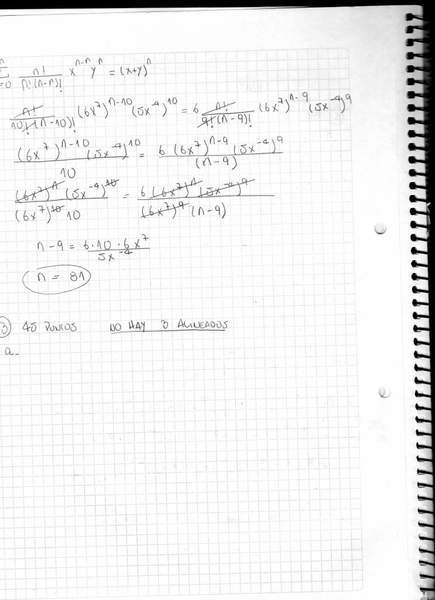 n
Σ n!/(n!(n-n)!) x^(n-n) y^n = (x+y)^n
=0
n!/(10!(n-10)!) (6x^7)^(n-10) (5x^-4)^10 = 6 n!/(9!(n-9)!) (6x^7)^(n-9) (5x^-4)^9
(6x^7)^(n-10) (5x^-4)^10 / 10 = 6 (6x^7)^(n-9) (5x^-4)^9 / (n-9)
(6x^7)^n (5x^-4)^10 / ((6x^7)^10 10) = 6 (6x^7)^n (5x^-4)^9 / ((6x^7)^9 (n-9))
n-9 = 6·10·6x^7 / 5x^-4
n = 81
3 45 PUNTOS NO HAY 3 ALINEADOS
a.-